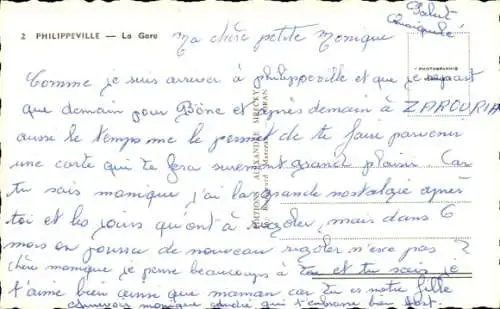 2 PHILIPPEVILLE — La Gare
Salut
Ma chère petite Monique
PHOTOGRAPHIE
Comme je suis arriver à philippeville et que je repart
que demain pour Bône et après demain à ZAROURIA
aussi le temps me le permet de te faire parvenir
une carte qui te fera surement grande plaisir. Car
tu sais monique j'ai la grande nostalgie après
toi et les jours qu'ont à rigoler, mais dans 6
mois on pourra de nouveau rigoler n'esce pas ?
chère monique je pense beaucoups à toi et tu sais je
t'aime bien aussi que maman car tu es notre fille
monique andré qui t'embrasse bien fort.
EDITIONS ALEXANDRE
ORAN